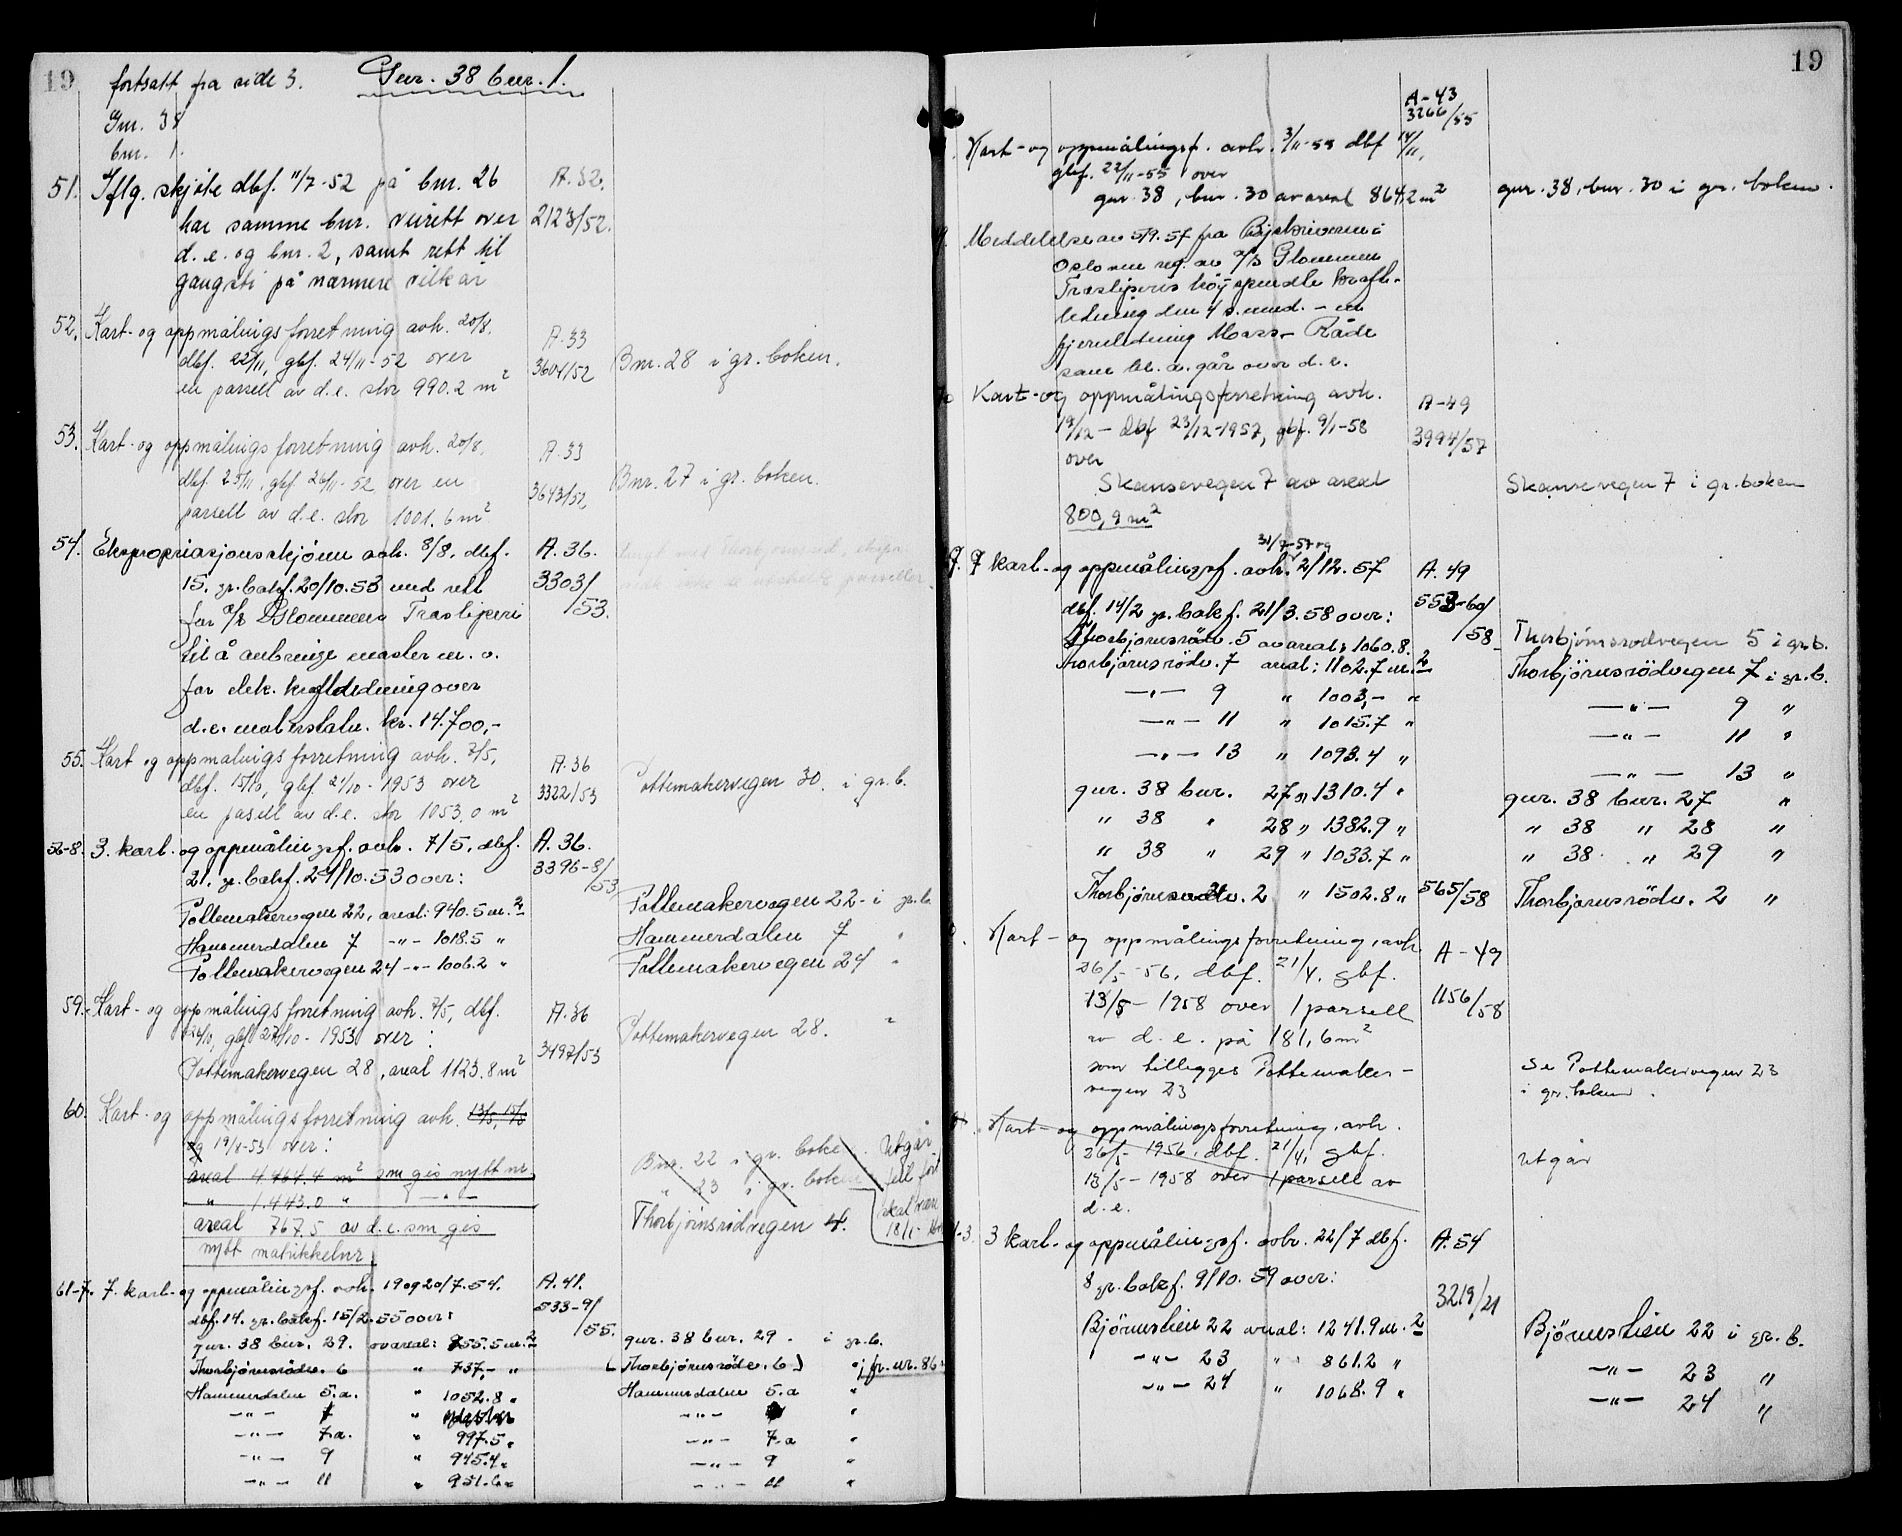 19
fortsatt fra side 3. Gnr. 38 bnr. 1.
Gnr. 38
bnr. 1.
51. Iflg. skjöte dbf. 11/7-52 på bnr. 26 A. 32.
har samme bnr. veirett over 2128/52.
d. e. og bnr. 2, samt rett til
gangsti på nærmere vilkår
52. Kart- og oppmålings forretning avh. 20/8. A. 33
dbf. 22/11, gbf. 24/11-52 over 3604/52 Bnr. 28 i gr. boken.
en parsell av d.e. stor 990.2 m2
53. Kart- og oppmålings forretning avh. 20/8. A. 33
dbf. 25/11, gbf. 26/11-52 over en 3643/52 Bnr. 27 i gr. boken.
parsell av d.e. stor 1001.6 m2
54. Ekspropriasjonsskjönn avh. 8/8, dbf. A. 36.
15. gr.bokf. 20/10.53 med rett 3303/53.
for A/S Glommens Træsliperi
til å anbringe master m. v.
for elek. kraftledning over
d.e. mot erstatn. kr. 14.700,-
55. Kart og oppmålings forretning avh. 7/5, A. 36
dbf. 15/10, gbf 21/10-1953 over 3322/53 Pottemakervegen 30. i gr. b.
en parsell av d.e. stor 1053,0 m2
56-8. 3. kart- og oppmålingsf. avh. 7/5, dbf. A. 36.
21. gr.bokf. 29/10.53 over: 3396-8/53
Pottemakervegen 22, areal: 940.5 m.2 Pottemakervegen 22- i gr.b.
Hammerdalen 7 -"- 1018.5 " Hammerdalen 7 "
Pottemakervegen 24 -"- 1006.2 " Pottemakervegen 24 "
59. Kart- og oppmålings forretning avh. 7/5, dbf. A. 36
24/10, gbf 27/10-1953 over: 3497/53 Pottemakervegen 28. "
Pottemakervegen 28, areal 1123.8 m2
60. Kart- og oppmålings forretning avh. 13/5, 15/5
og 19/8-53 over:
areal 4.464.4 m2 som gis nytt nr. Bnr. 22 i gr. boken. Utgår
" 1.443.0 " -"- " 23 i gr. boken feil fört
areal 767.5 av d.e. som gis Thorbjörnsrödvegen 4. skal være
nytt matrikkelnr. 18/1-
61-7. 7. kart- og oppmålingsf. avh. 19 og 20/7.54. A. 41.
dbf. 14. gr.bokf. 15/2.55 over: 533-9/55.
gnr. 38 bnr. 29. av areal: 955.5 m.2 gnr. 38 bnr. 29. i gr.b.
Thorbjörnsrödv. 6 " 737,- " (Thorbjörnsrödv. 6) " jfr. nr. 86
Hammerdalen 5.a. " 1052.8 " Hammerdalen 5.a "
-"- 7 " -"- "
-"- 7.a. " 997.5 " -"- 7.a "
-"- 9 " 945.4 " -"- 9 "
-"- 11 " 951.6 " -"- 11 "
19
A-43
3266/55
Kart- og oppmålingsf. avh. 3/11-55 dbf 14/11,
gbf. 22/11-55 over
gnr. 38, bnr. 30 av areal 864,2 m2 gnr. 38, bnr. 30 i gr. boken.
Meddelelse av 5/9.57 fra Byskriveren i
Oslo om reg. av A/S Glommen
Træsliperis höyspendte kraft-
ledning den 4 s. mnd. - en
fjernledning Moss- Råde
som bl. a. går over d. e.
Kart- og oppmålingsforretning avh. A-49
19/12- dbf 23/12-1957, gbf. 9/1-58 3994/57
over
Skansevegen 7 av areal Skansevegen 7 i gr.boken
800,9 m2
31/7-57 og
7 kart- og oppmålingsf. avh. 2/12.57 A. 49
dbf. 14/2 gr.bokf. 21/3.58 over: 553-60/58
Thorbjörnsrödv. 5 av areal: 1060.8. Thorbjörnsrödvegen 5 i grb.
Thorbjörnsrödv. 7 areal: 1102.7 m.2 Thorbjörnsrödvegen 7 i gr.b.
-"- 9 " 1003,- " -"- 9 "
-"- 11 " 1015.7 " -"- 11 "
-"- 13 " 1093.4 " -"- 13 "
gnr. 38 bnr. 27 " 1310.4 " gnr. 38 bnr. 27 "
" 38 " 28 " 1382.9 " " 38 " 28 "
" 38 " 29 " 1033.7 " " 38. " 29 "
Thorbjörnsrödv. 2 " 1502.8 " 565/58 Thorbjörnsrödv. 2 "
Kart- og oppmålings forretning, avh. A-49
26/5-56, dbf. 21/4, gbf.
13/5-1958 over 1 parsell 1156/58
av d. e. på 181,6 m2
som tillegges Pottemaker- Se Pottemakervegen 23
vegen 23 i gr. boken.
Kart- og oppmålingsforretning, avh.
26/5-1956, dbf. 21/4, gbf. Utgår
13/5-1958 over 1 parsell av
d. e.
1-3. 3 kart- og oppmålingsf. avh. 22/7 dbf. A. 54
8 gr.bokf. 9/10.59 over: 3219/21
Björnslien 22 areal: 1241.9 m.2 Björnslien 22 i gr. b.
-"- 23 " 861.2 " -"- 23 "
-"- 24 " 1068.9 " -"- 24 "